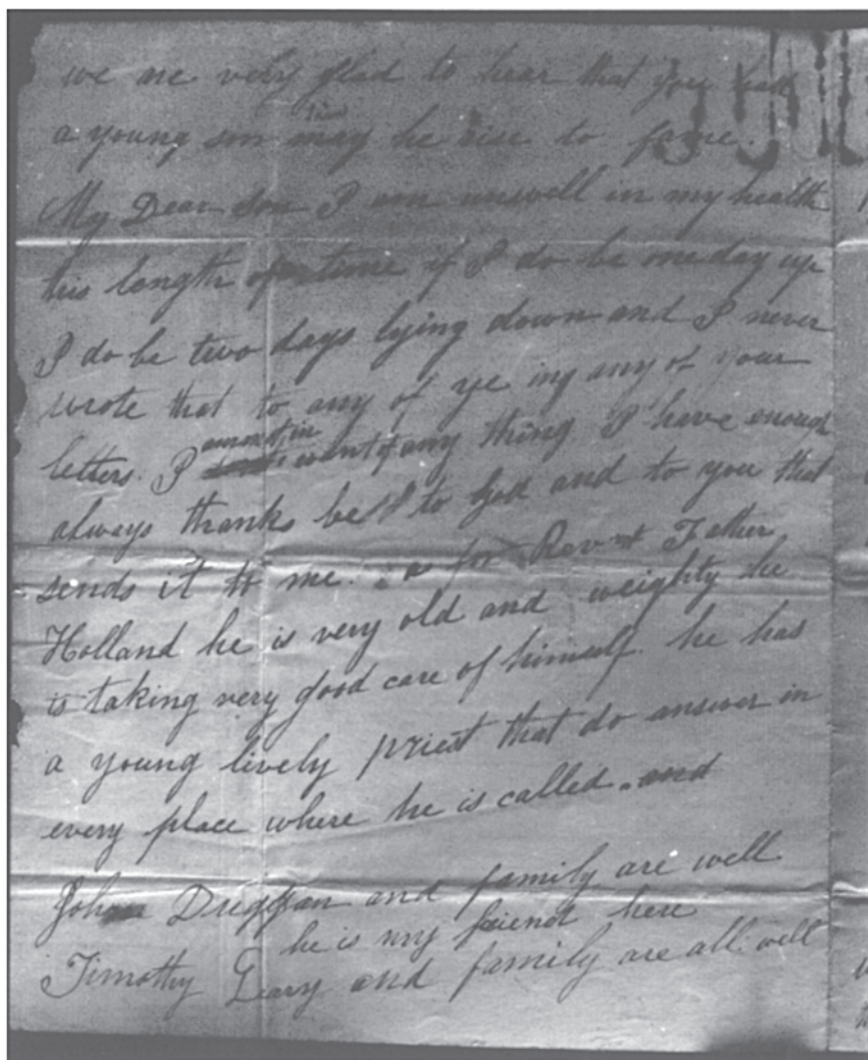 we are very glad to hear that you had
a young son may he rise to fame.
My Dear son I am unwell in my health
this length of time if I do be one day up
I do be two days lying down and I never
wrote that to any of ye ing any of your
letters. I amont in want of any thing I have enough
always thanks be to God and to you that
sends it to me. as for Revnt Father
Holland he is very old and weighty he
is taking very good care of himself. he has
a young lively priest that do answer in
every place where he is called. and
John and family are well
he is my friend here
Timothy Leary and family are all well